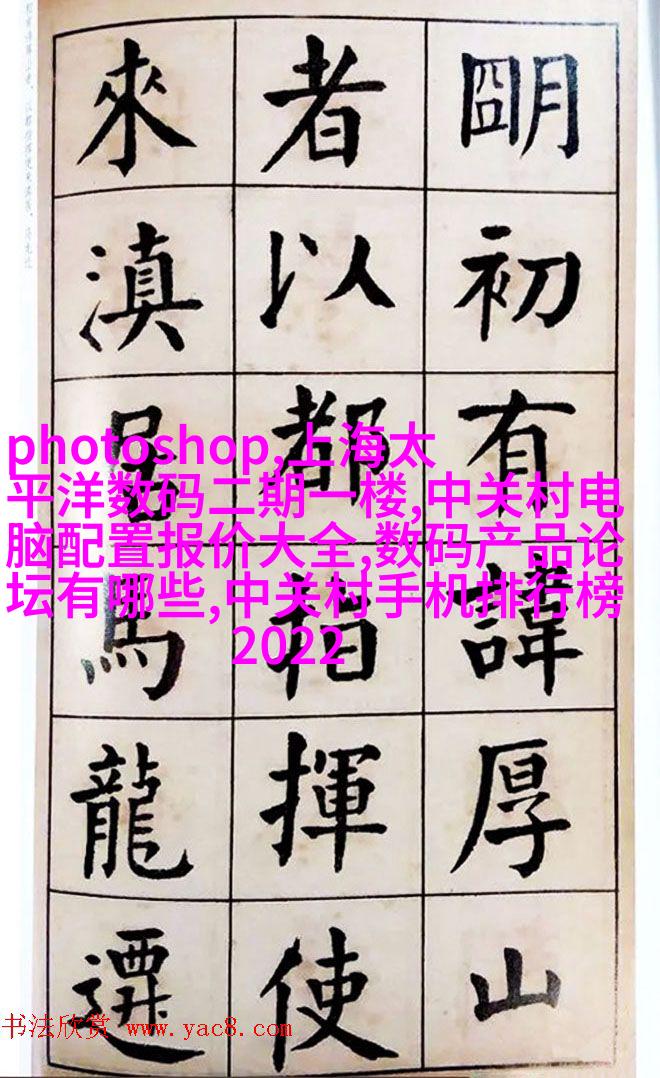 朙初有諱厚山
者以都指揮使
來滇馬龍遷
photoshop,上海太
平洋数码二期一楼,中关村电
脑配置报价大全,数码产品论
坛有哪些,中关村手机排行榜
2022
书法欣赏 www.yac8.com